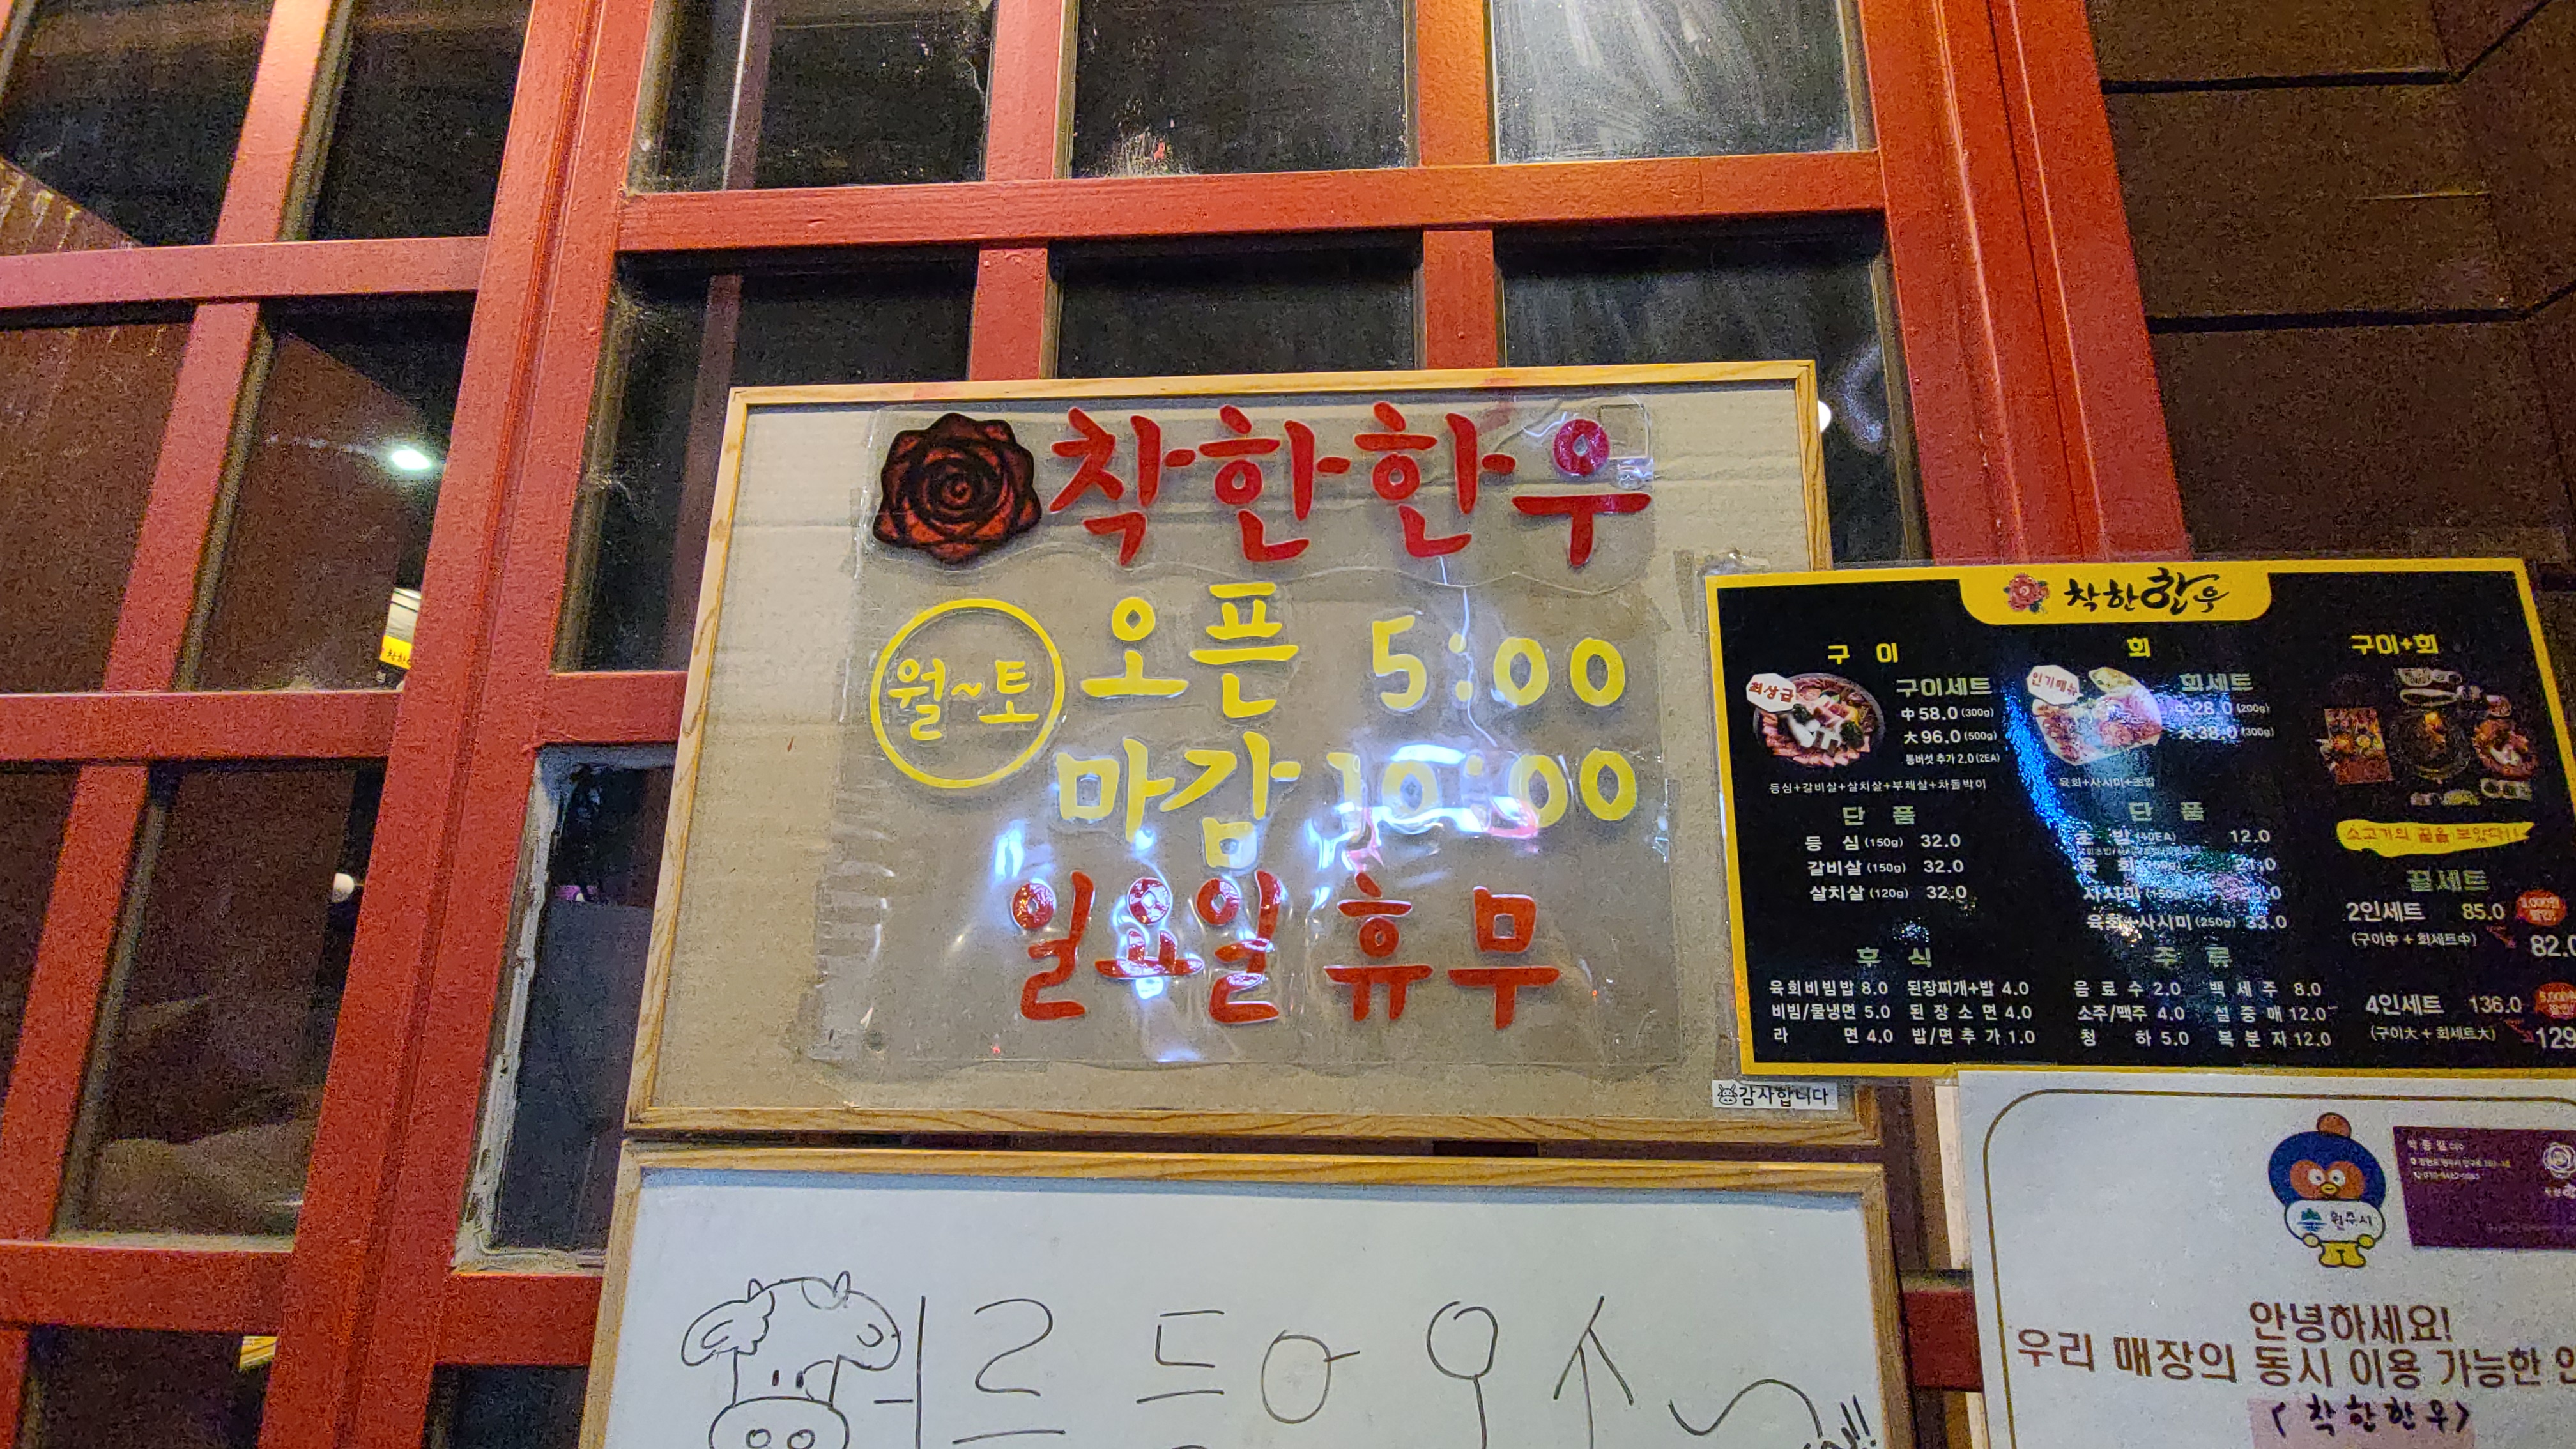 착한한우
월~토
오픈 5:00
마감 10:00
일요일 휴무
감사합니다
착한한우
구이
최상급
구이세트
中 58.0 (300g)
大 96.0 (500g)
통버섯 추가 2.0 (2EA)
등심+갈비살+살치살+부채살+차돌박이
단품
등심 (150g) 32.0
갈비살 (150g) 32.0
살치살 (120g) 32.0
회
인기메뉴
회세트
中 28.0 (200g)
大 38.0 (300g)
육회+사시미+초밥
단품
초밥 (10EA) 12.0
육회
사시미 (150g)
육회+사시미 (250g) 33.0
구이+회
소고기의 끝을 보았다!!
끝세트
2인세트 85.0
(구이中 + 회세트中)
82.0
4인세트 136.0
(구이大 + 회세트大)
129
후식
육회비빔밥 8.0 된장찌개+밥 4.0
비빔/물냉면 5.0 된장소면 4.0
라면 4.0 밥/면추가 1.0
주류
음료수 2.0 백세주 8.0
소주/맥주 4.0 설중매 12.0
청하 5.0 복분자 12.0
원주시
안녕하세요!
우리 매장의 동시 이용 가능한
<착한한우>